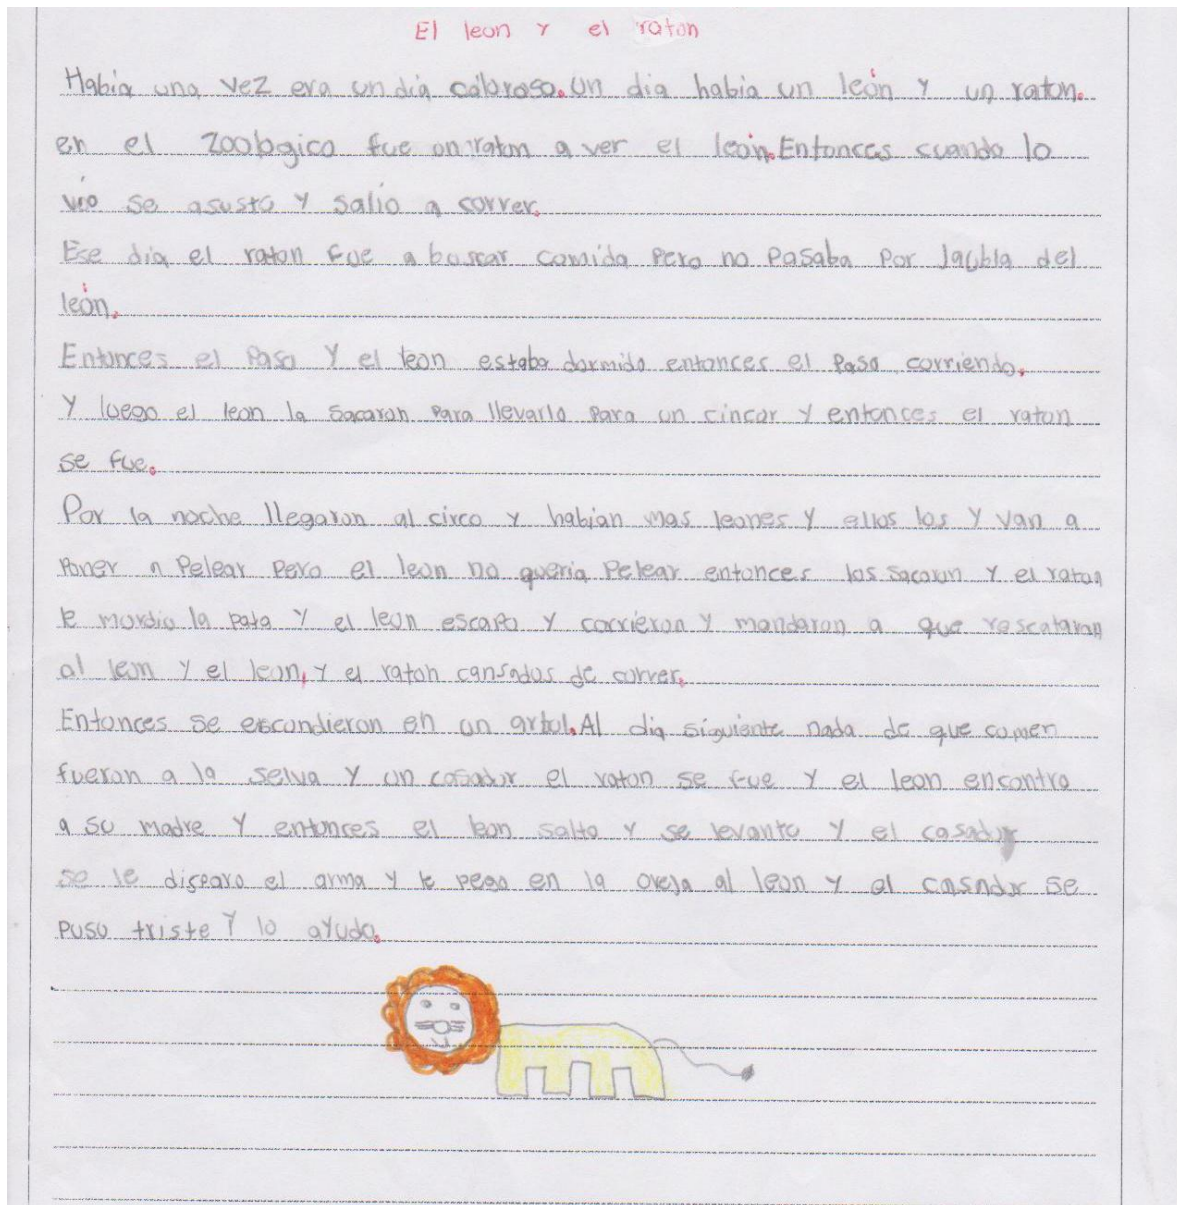 El leon y el raton
Había una vez era un dia caloroso. un dia habia un león y un raton.
en el zoologico fue un raton a ver el león. Entonces cuando lo
vio se asusto y salio a correr.
Ese dia el raton fue a buscar comida pero no pasaba por la del
león.
Entonces el paso y el leon estaba dormido entonces el paso corriendo.
Y luego el leon la sacaron para llevarlo para un cincor y entonces el raton
se fue.
Por la noche llegaron al circo y habian mas leones y ellos los y van a
poner a pelear pero el leon no queria pelear entonces los sacaron y el raton
le murdio la pata y el leon escapo y corrieron y mandaron a que rescataran
al leon y el leon, y el raton cansados de correr.
Entonces se escundieron en un arbol. Al dia siguiente nada de que comen
fueron a la selva y un casador el raton se fue y el leon encontro
a su madre y entonces el leon salto y se levanto y el casador
se le disparo el arma y le pego en la oreja al leon y el casador se
puso triste y lo ayudo.